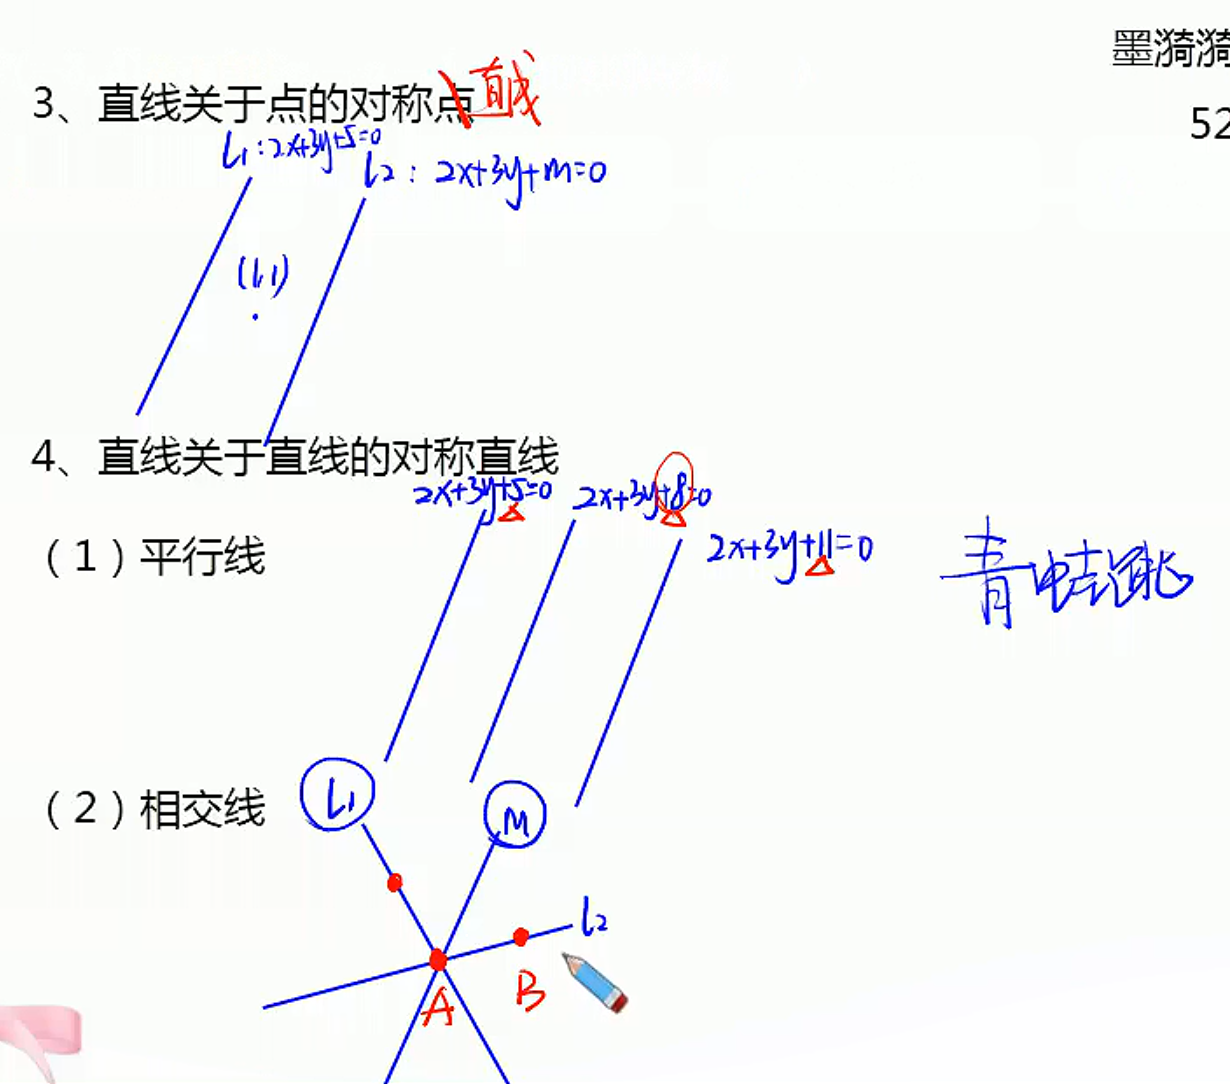 墨漪漪
3、直线关于点的对称点 直线
52
L1:2x+3y+5=0
L2:2x+3y+m=0
(1,1)
4、直线关于直线的对称直线
2x+3y+5=0
2x+3y+8=0
(1)平行线
2x+3y+11=0
青蛙跳
(2)相交线
L1
M
L2
A
B